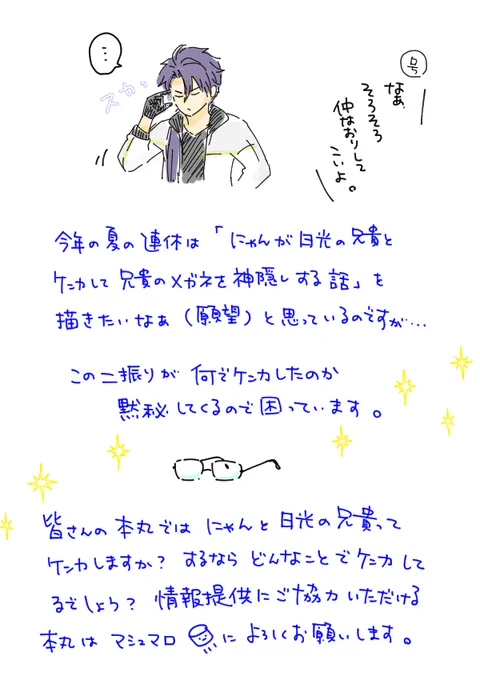 号
なぁ、
そろそろ
仲なおりして
こいよ。
…
スカッ
今年の夏の連休は「にゃんが日光の兄貴と
ケンカして兄貴のメガネを神隠しする話」を
描きたいなぁ（願望）と思っているのですが…
この二振りが何でケンカしたのか
黙秘してくるので困っています。
皆さんの本丸ではにゃんと日光の兄貴って
ケンカしますか？するならどんなことでケンカして
るでしょう？情報提供にご協力いただける
本丸はマシュマロによろしくお願いします。